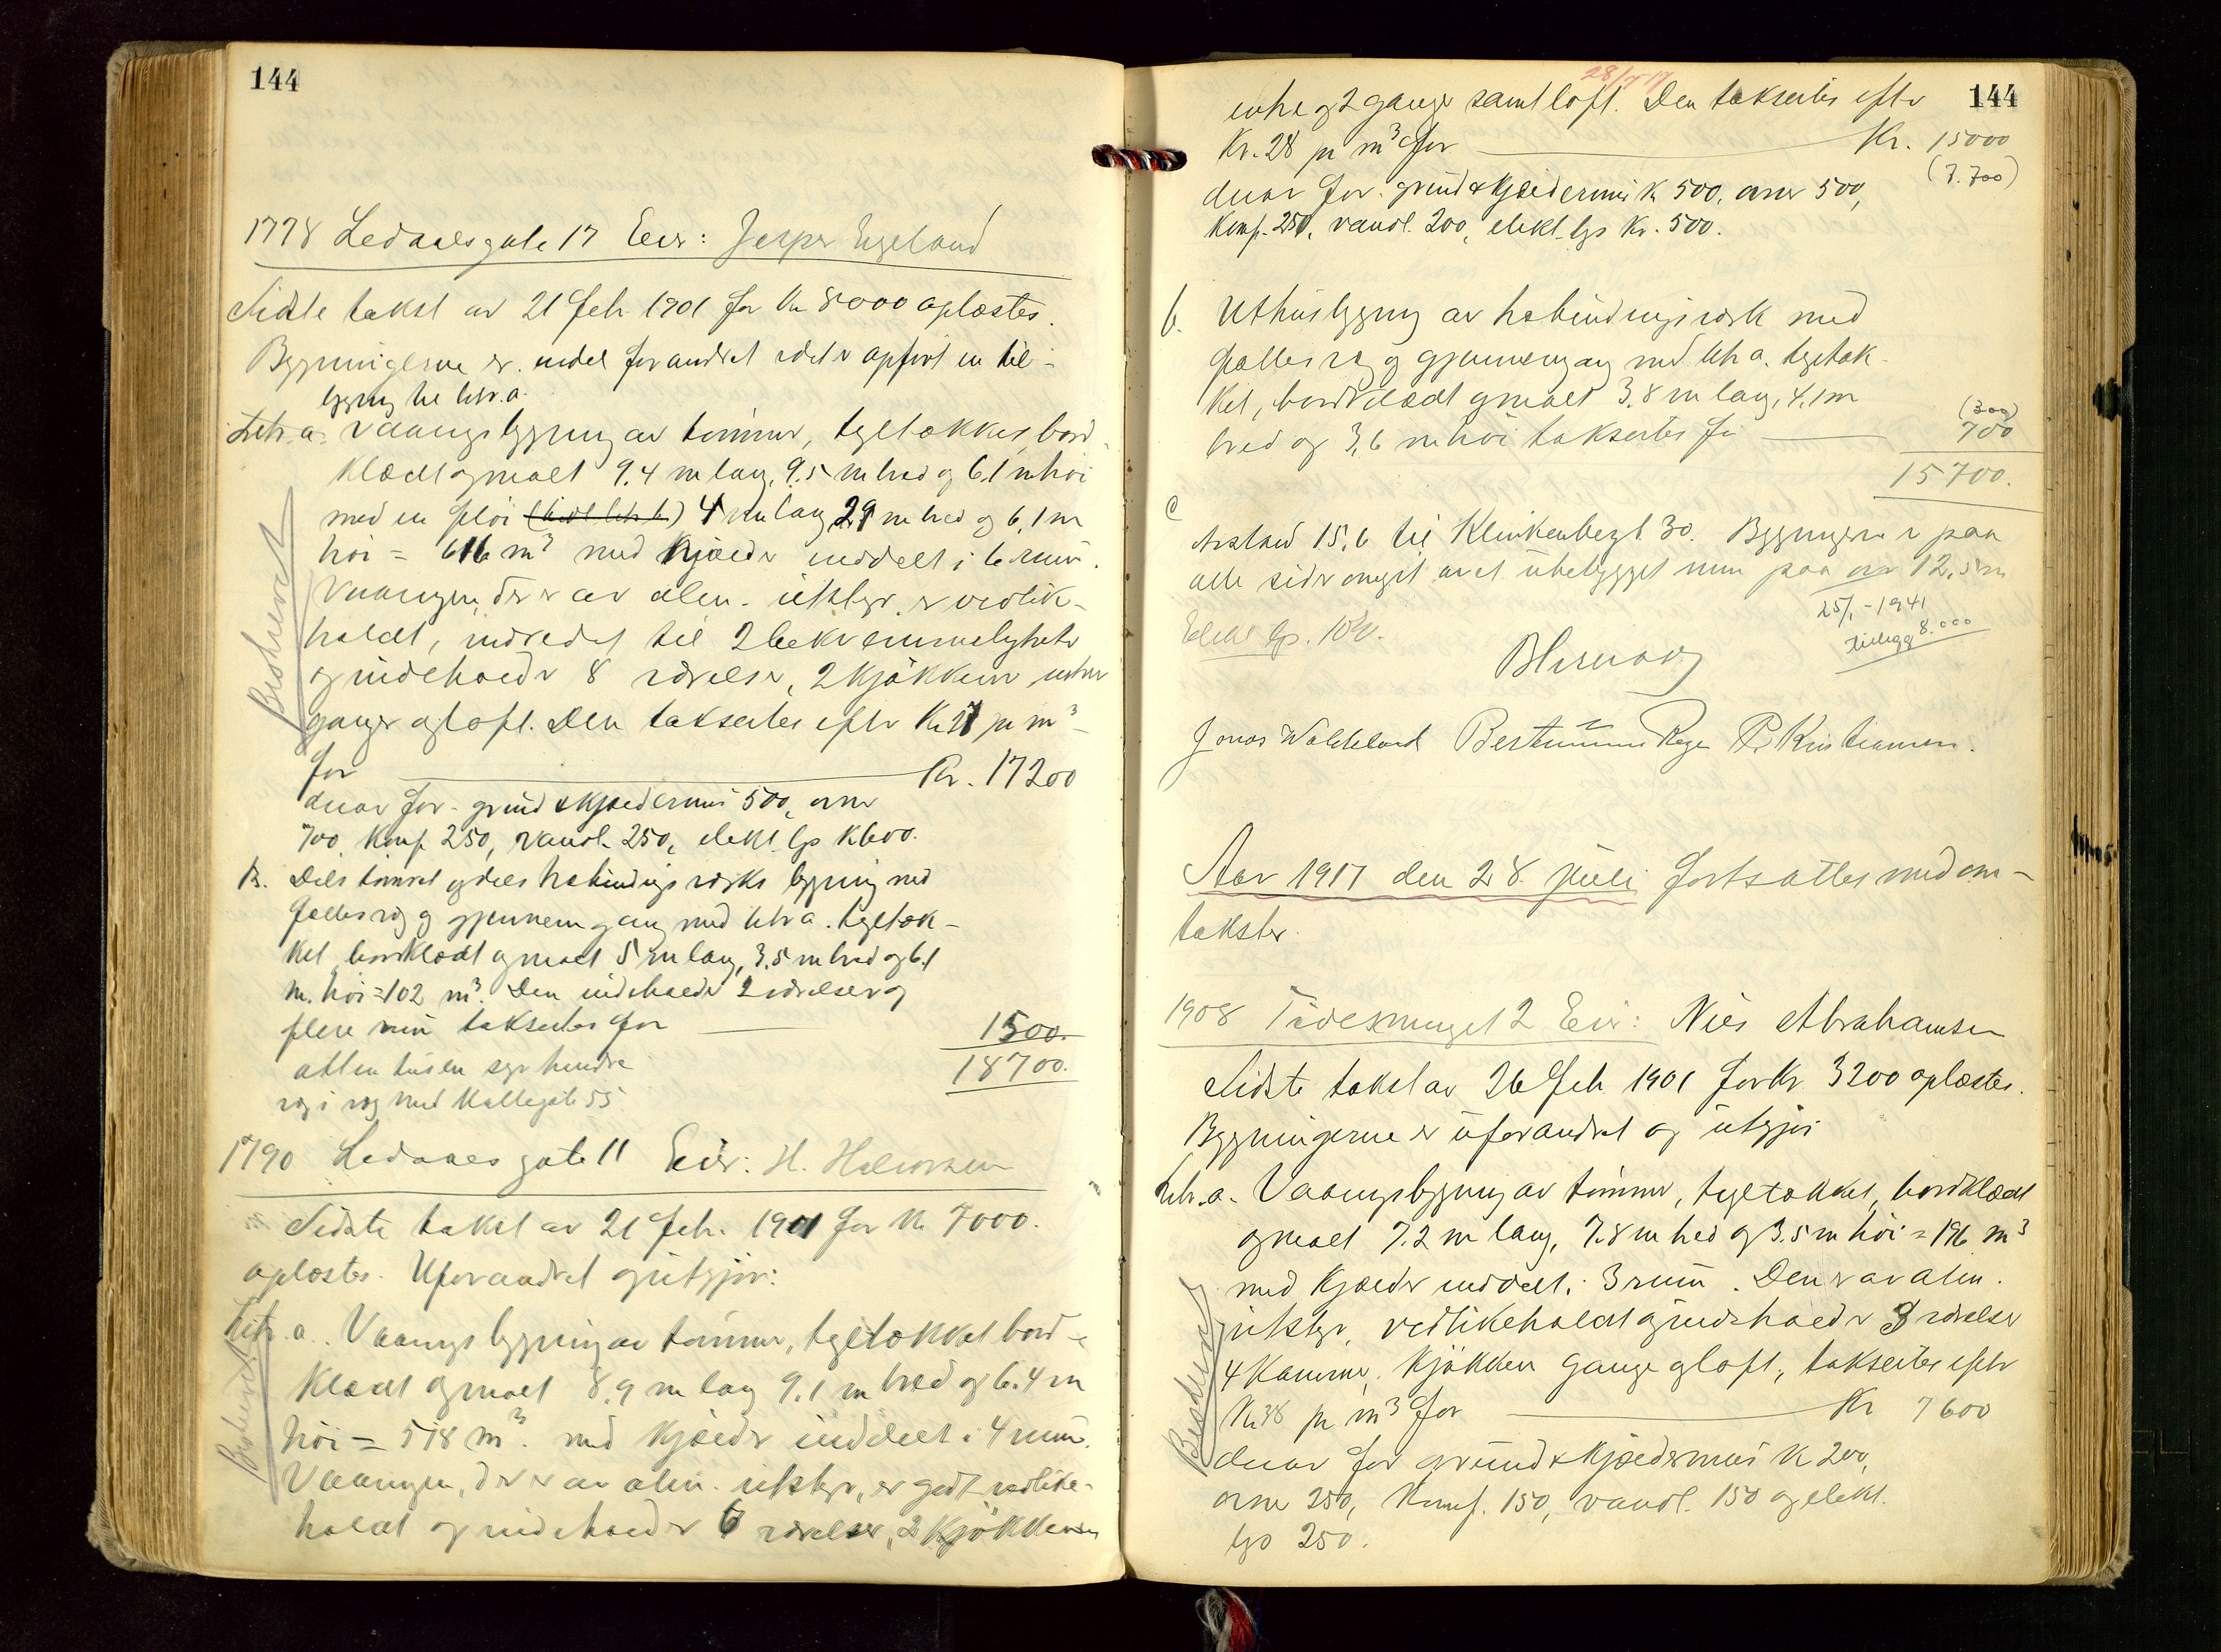 144
1778 Ledaalsgate 17 Eier: Jesper Egeland
Sidste takst av 21 Feb 1901 for Kr 8000 oplæstes.
Bygningerne er endel forandret idet er opført en til-
bygning til litr. a.
Litr. a. Vaaningsbygning av tømmer, tegltækket, bord-
klædt og malt 9.4 m lang, 9.5 m bred og 6.1 m høi
med en fløi 4 m lang 2.9 m bred og 6,1 m
høi = 616 m³ med kjælder inddelt i 6 rum.
Vaaningen, der er av alm. utstyr, er vedlike-
holdt, indredet til 2 bekvemmeligheter
og indeholder 8 værelser, 2 kjøkkener, entre
ganger og loft. Den takseertes efter Kr 27 pr m³
for Kr. 17200
derav for grund & kjeldermur 500, ovner
700, komf. 250, vandl. 250, elekt. lys K 600.
B. Dels tømret og dels halvbindingsverks bygning med
fælles væg og gjennemgang med litr a. tegltæk-
ket, bordklædt og malt 5 m lang, 3.5 m bred og 6.1
m. høi = 102 m³. Den indeholder 2 værelser og
flere rum takseertes for 1500.
atten tusen syv hundre 18700.
væg i væg med Kallegate 55
1790 Ledaalsgate 11 Eier: H. Halvorsen
Sidste takst av 21 Feb. 1901 for Kr 7000.
oplæstes. Uforandret og utgjør:
Litr. a. Vaaningsbygning av tømmer, tegltækket bord-
klædt og malt 8.9 m lang 9.1 m bred og 6.4 m
høi = 518 m³. med kjælder inddelt i 4 rum.
Vaaningen, der er av alm. utstyr, er godt vedlike-
holdt og indeholder 6 værelser, 2 kjøkkener
144
28/7-17
entre og 2 ganger samt loft. Den takseertes efter
Kr. 28 pr m³ for Kr. 15000
(7.700)
derav for grund & kjeldermur K 500, ovner 500,
Komf. 250, vandl. 200, elekt. lys Kr. 500.
b. Uthusbygning av halvbindingsverk med
fælles væg og gjennemgang med litr a. tegltæk-
ket, bordklædt og malt 3.8 m lang, 4.1 m
bred og 3,6 m høi takseertes for 700
(300)
15700.
c
Avstand 15.6 til Klinkenbergt. 30. Bygningerne er paa
alle sider omgit av et ubebygget rum paa over 12,5 m
25/1-1941
Tillegg 8.000
Elekt lys.
Jonas Waldeland P. Kristiansen.
Aar 1917 den 28 juli fortsattes med om-
takster
1908 Tidesmuget 2 Eier: Nils Abrahamsen
Sidste takst av 26 Feb 1901 for Kr. 3200 oplæstes.
Bygningerne er uforandret og utgjør
Litr. a. Vaaningsbygning av tømmer, tegltækket, bordklædt
og malt 7.2 m lang, 7.8 m bred og 3.5 m høi = 196 m³
med kjælder inddelt i 3 rum. Den er av alm.
utstyr, vedlikeholdt og indeholder 3 værelser
4 kammer, kjøkken gange og loft, takseertes efter
Kr 38 pr m³ for Kr 7600
derav for grund & kjældermur K 200,
ovne 250, Komf. 150, vandl. 150 og elekt.
lys 250.